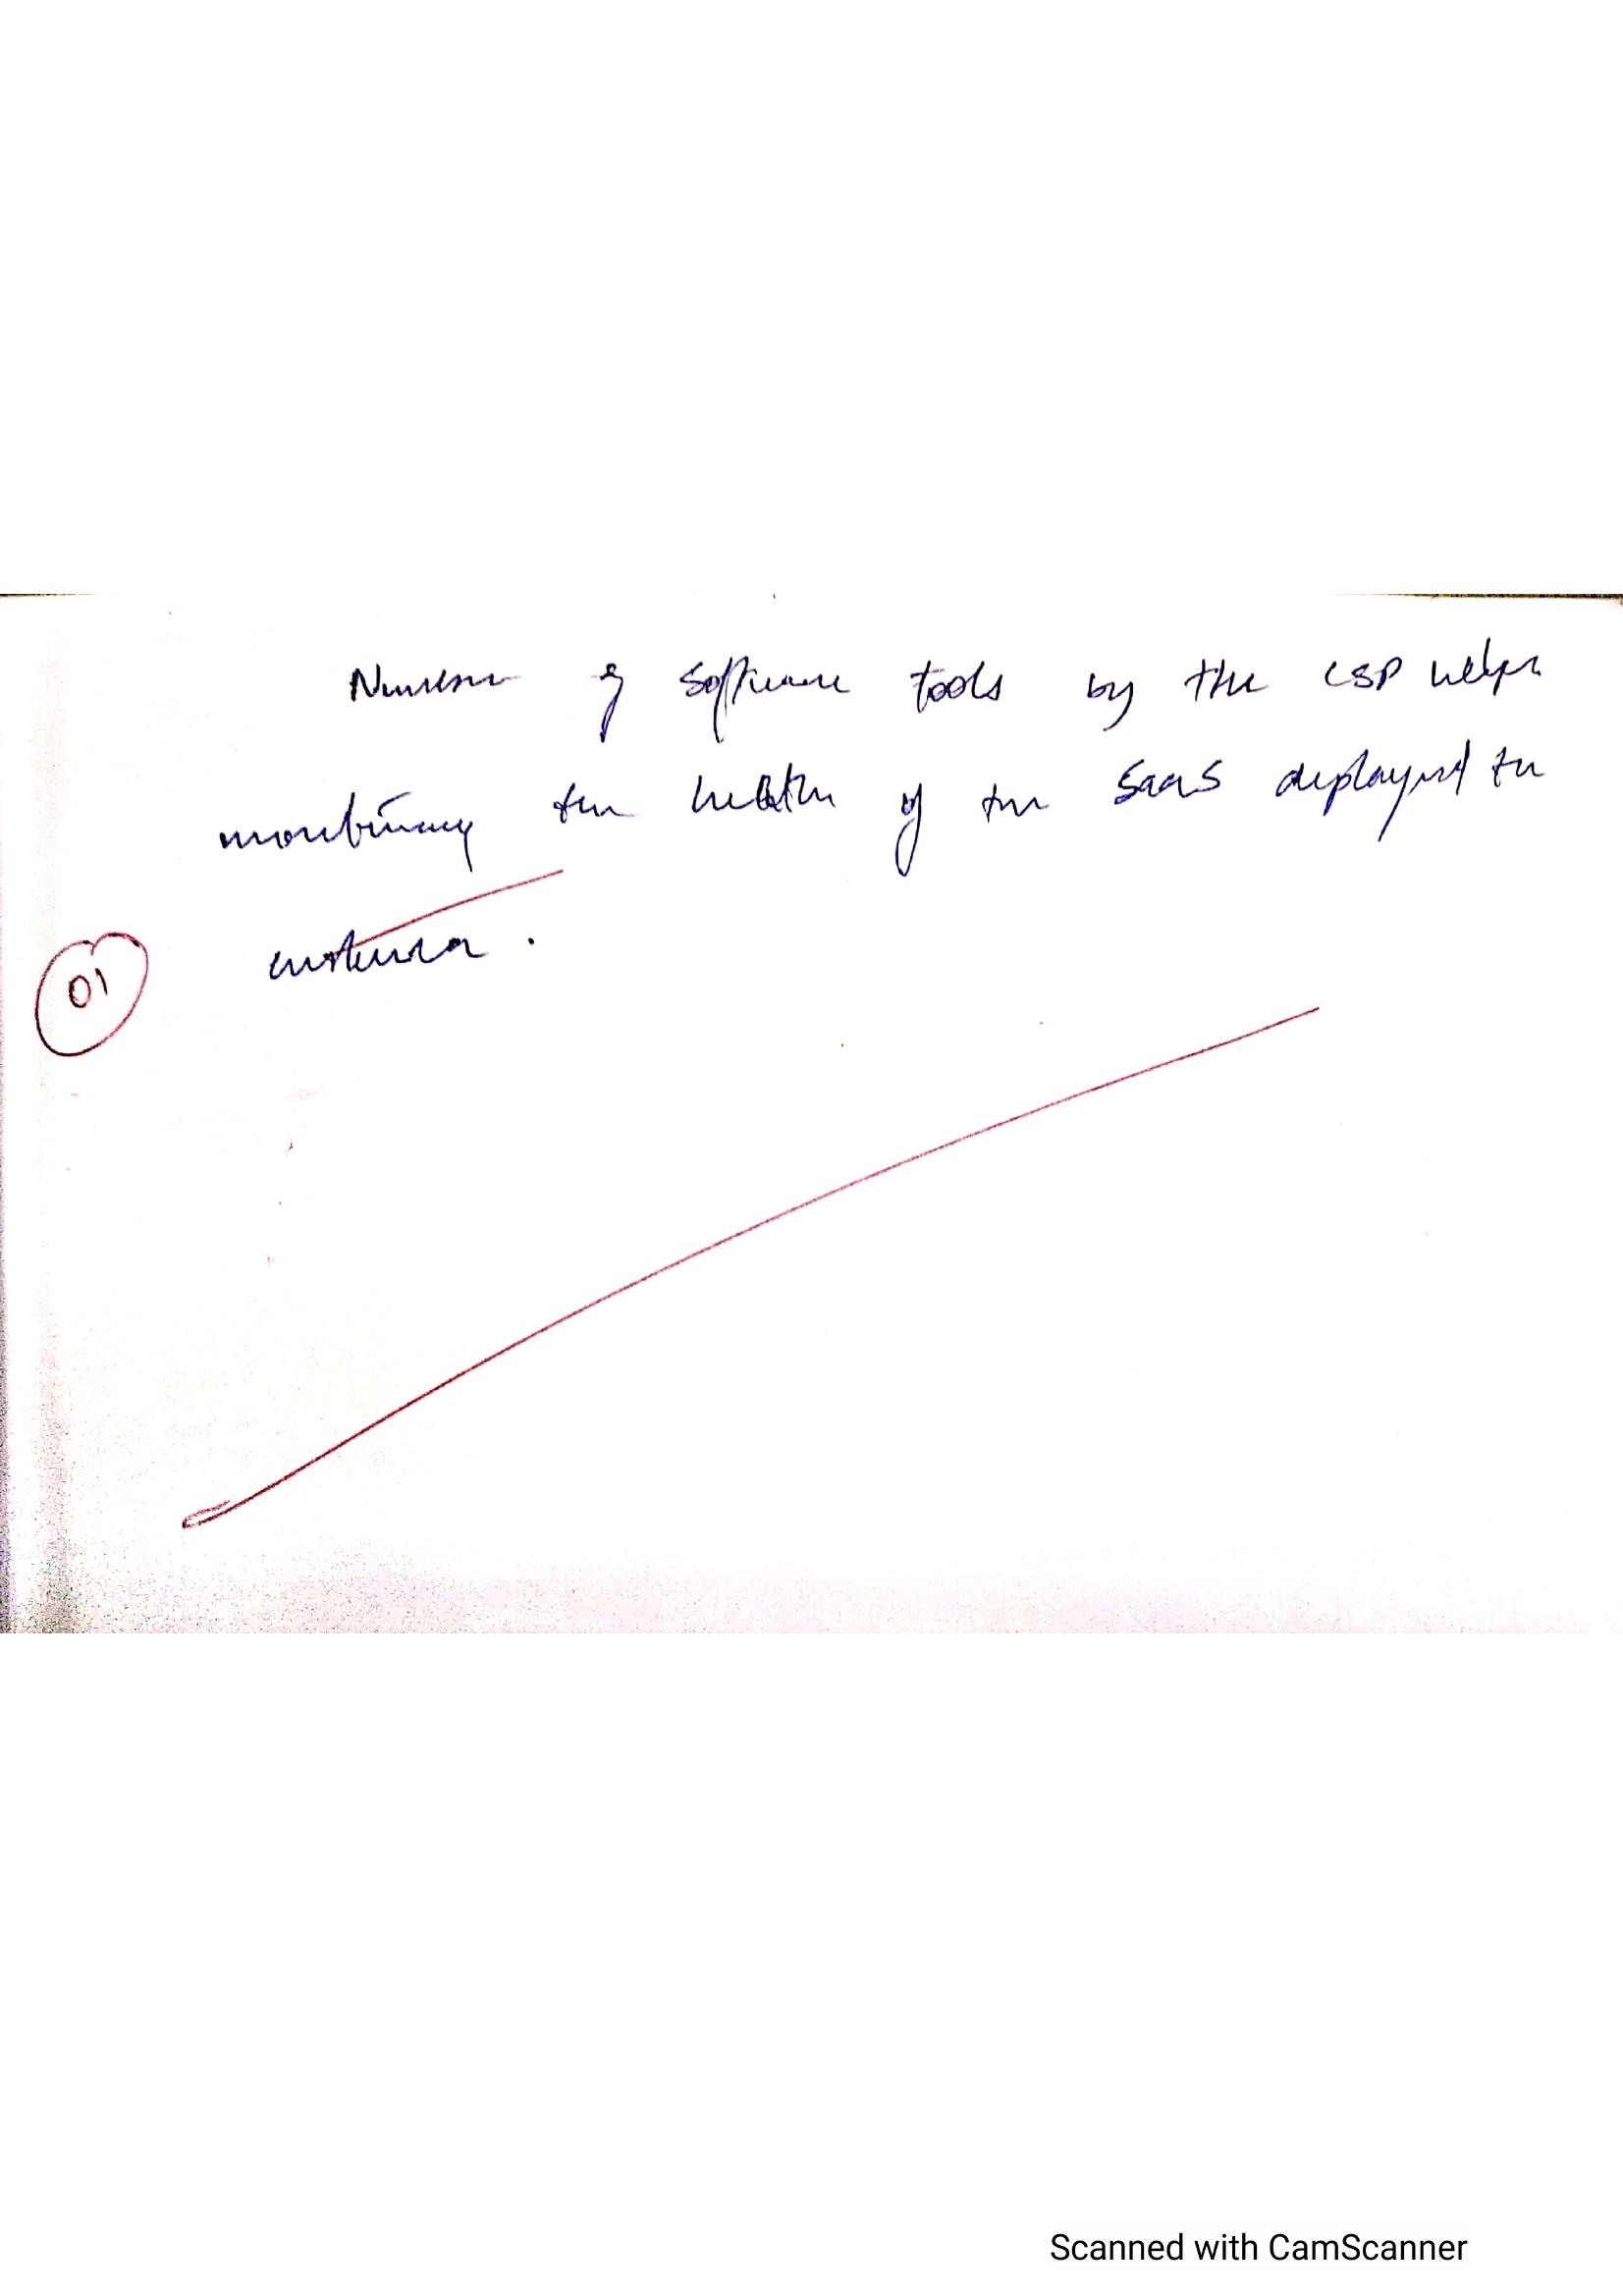 Number of software tools by the CSP helps
monitoring the health of the SaaS deployed to
customer.
01
Scanned with CamScanner